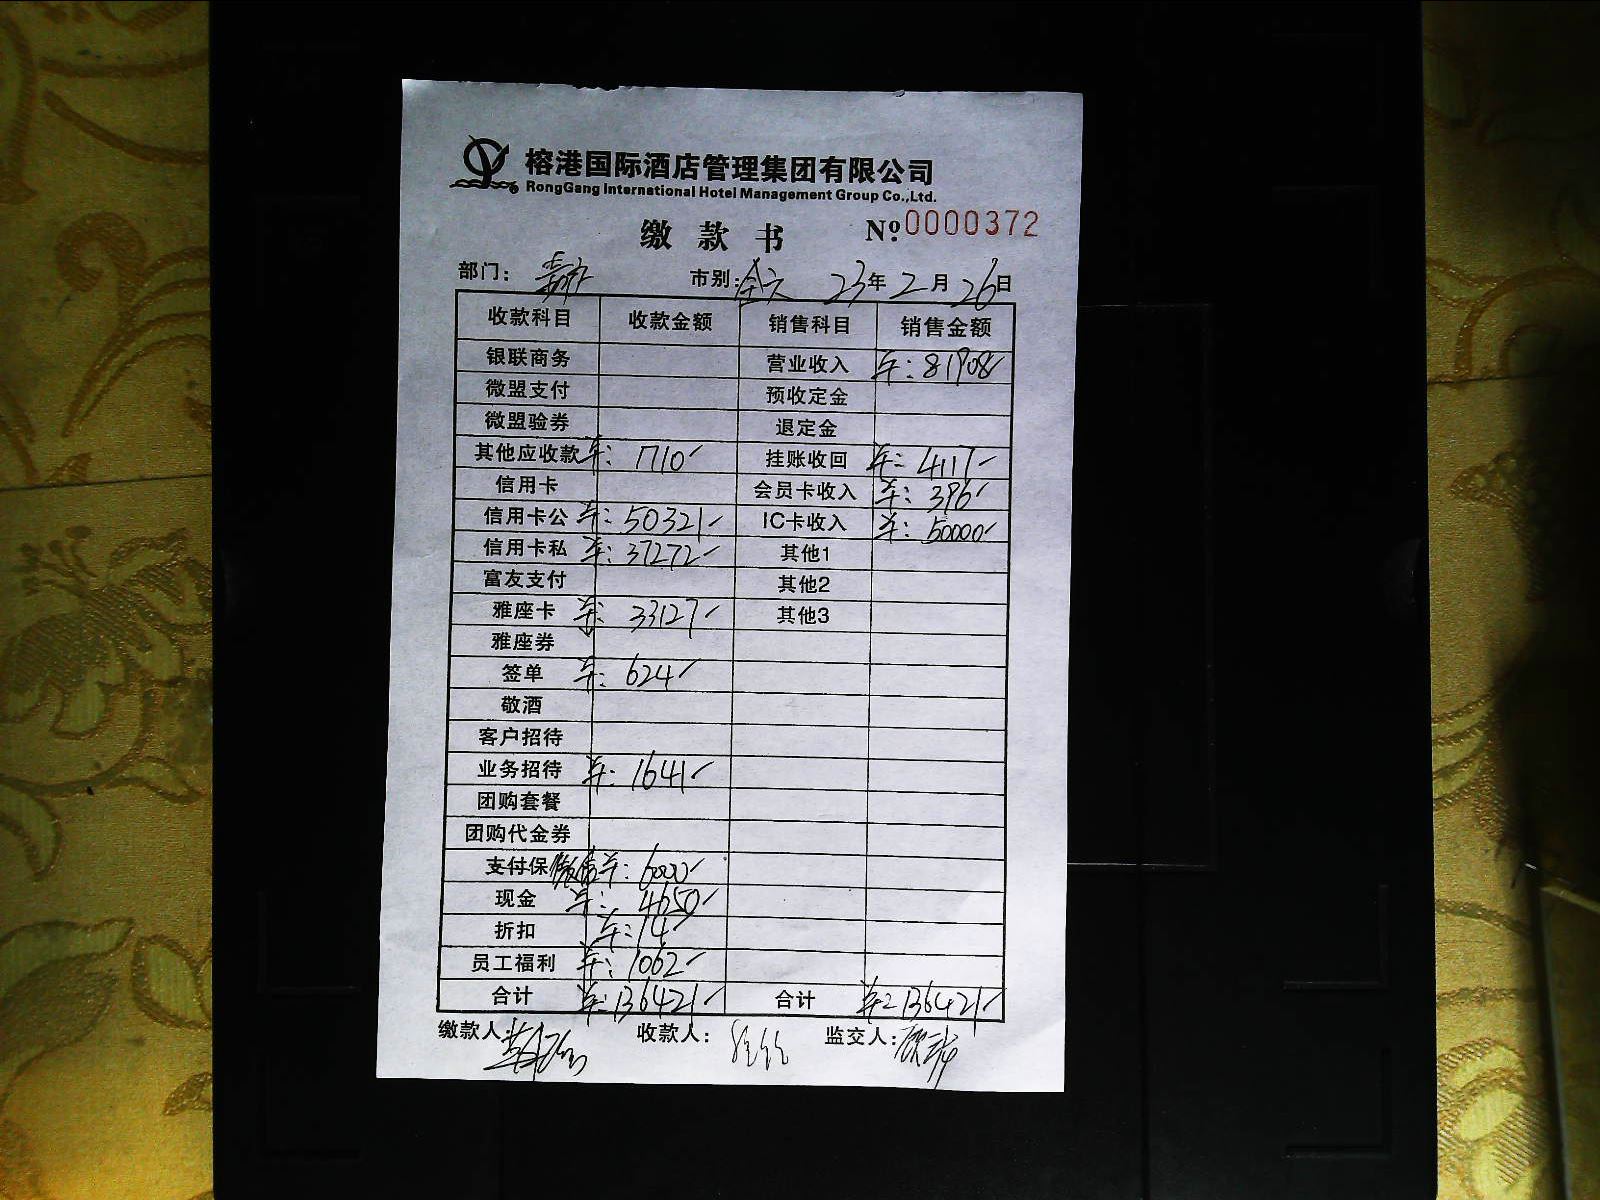 榕港国际酒店管理集团有限公司
RongGang International Hotel Management Group Co.,Ltd.
缴款书 Nº.0000372
部门: 市别: 全天 23年2月26日
收款科目 收款金额 销售科目 销售金额
银联商务 营业收入 ¥: 81908
微盟支付 预收定金
微盟验券 退定金
其他应收款 ¥: 1710 挂账收回 ¥: 4117
信用卡 会员卡收入 ¥: 396
信用卡公 ¥: 50321 IC卡收入 ¥: 50000
信用卡私 ¥: 37272 其他1
富友支付 其他2
雅座卡 ¥: 33127 其他3
雅座券
签单 ¥: 624
敬酒
客户招待
业务招待 ¥: 1641
团购套餐
团购代金券
支付保 微信 ¥: 6000
现金 ¥: 4650
折扣 ¥: 14
员工福利 ¥: 1062
合计 ¥: 136421 合计 ¥: 136421
缴款人: 收款人: 监交人: